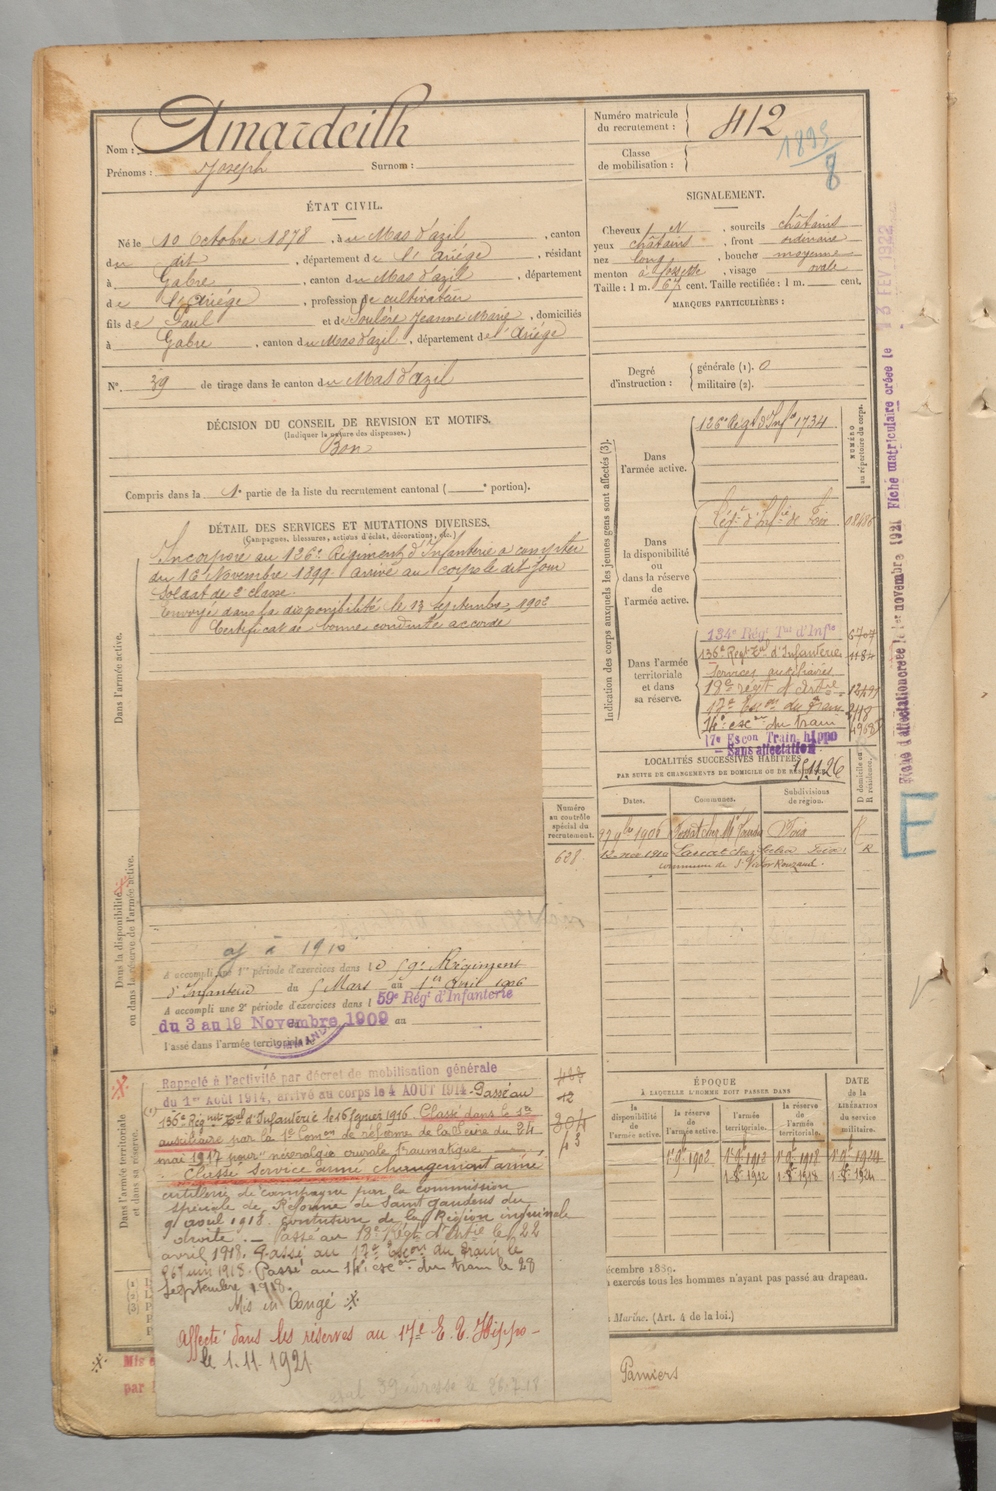 Nom : Amardeilh
Prénoms : Joseph Surnom :
Numéro matricule du recrutement : 412
Classe de mobilisation : 1895/8
ÉTAT CIVIL.
Né le 10 Octobre 1878, à u Mas d'azil, canton
du dit, département de l'Ariége, résidant
à Gabre, canton du Mas d'azil, département
de l'Ariége, profession de cultivateur
fils de Paul et de Soulère Jeanne Marie, domiciliés
à Gabre, canton du Mas d'azil, département de l'Ariége
N° 39 de tirage dans le canton du Mas d'azil
DÉCISION DU CONSEIL DE REVISION ET MOTIFS.
(Indiquer la nature des dispenses.)
Bon
Compris dans la 1e partie de la liste du recrutement cantonal ( e portion).
DÉTAIL DES SERVICES ET MUTATIONS DIVERSES.
(Campagnes, blessures, actions d'éclat, décorations, etc.)
Dans l'armée active.
Incorporé au 126e Régiment d'Infanterie à compter
du 16 Novembre 1899. arrivé au corps le dit jour
Soldat de 2e classe.
Envoyé dans la disponibilité le 13 Septembre 1902
Certificat de bonne conduite accordé
Numéro au contrôle spécial du recrutement.
608
Dans la disponibilité ou dans la réserve de l'armée active.
aj à 1910
A accompli une 1re période d'exercices dans le 59e Régiment
d'Infanterie du 5 Mars au 1er Avril 1906
A accompli une 2e période d'exercices dans l 59e Régt d'Infanterie
du 3 au 19 Novembre 1909 au
Passé dans l'armée territoriale
Dans l'armée territoriale et dans sa réserve.
Rappelé à l'activité par décret de mobilisation générale
du 1er Août 1914, arrivé au corps le 4 AOUT 1914. Passé au
136e Régiment Tal d'Infanterie le 16 février 1916. Classé dans le Sce
auxiliaire par la 1e Comon de réforme de la Seine du 24
mai 1917 pour névralgie crurale traumatique
Classé service armé changement armé
artillerie de campagne par la commission
spéciale de Réforme de Saint gaudens du
9 avril 1918. Contusion de la Région inguinale
droite. — Passé au 18e Régt d'Artie le 22
avril 1918. Passé au 17e Escon du Train le
26 juin 1918. Passé au 14e escon du train le 28
Septembre 1918.
Mis en Congé
Affecté dans les réserves au 17e E. T. Hippo-
le 1.11.1921
SIGNALEMENT.
Cheveux N, sourcils châtains
yeux châtains, front ordinaire
nez long, bouche moyenne
menton à fossette, visage ovale
Taille : 1 m. 67 cent. Taille rectifiée : 1 m. cent.
MARQUES PARTICULIÈRES :
Degré d'instruction : générale (1). 0
militaire (2).
Indication des corps auxquels les jeunes gens sont affectés (3).
NUMÉRO au répertoire du corps.
Dans l'armée active.
126e Régt d'Infie 1734
Dans la disponibilité ou dans la réserve de l'armée active.
Régt d'Infie de Foix
Dans l'armée territoriale et dans sa réserve.
134e Régt Tal d'Infie
136e Régt Tal d'Infanterie
Services auxiliaires
18e régt d'Artie
17e Escon du Train
14e escon du train
17e Escon Train hippo
— Sans affectation
LOCALITÉS SUCCESSIVES HABITÉES
PAR SUITE DE CHANGEMENTS DE DOMICILE OU DE RÉSIDENCE.
15.11.26
Dates. Communes. Subdivisions de région. D domicile ou R résidence.
Foix
commune de St Victor Rouzaud. R
ÉPOQUE
À LAQUELLE L'HOMME DOIT PASSER DANS
DATE DE LA LIBÉRATION du service militaire.
la disponibilité de l'armée active. la réserve de l'armée active. l'armée territoriale. la réserve de l'armée territoriale.
1er 9bre 1902 1er 9bre 1912 1er 9bre 1918 1er 9bre 1924
décembre 1889.
exercés tous les hommes n'ayant pas passé au drapeau.
Marine. (Art. 4 de la loi.)
Pamiers
Fiche d'affectation créée le 1er novembre 1921
Fiche matriculaire créée le 13 FEV. 1922
E
Mis e
par l